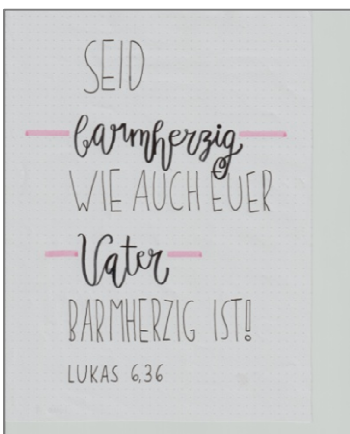 SEID
barmherzig
WIE AUCH EUER
Vater
BARMHERZIG IST!
LUKAS 6,36